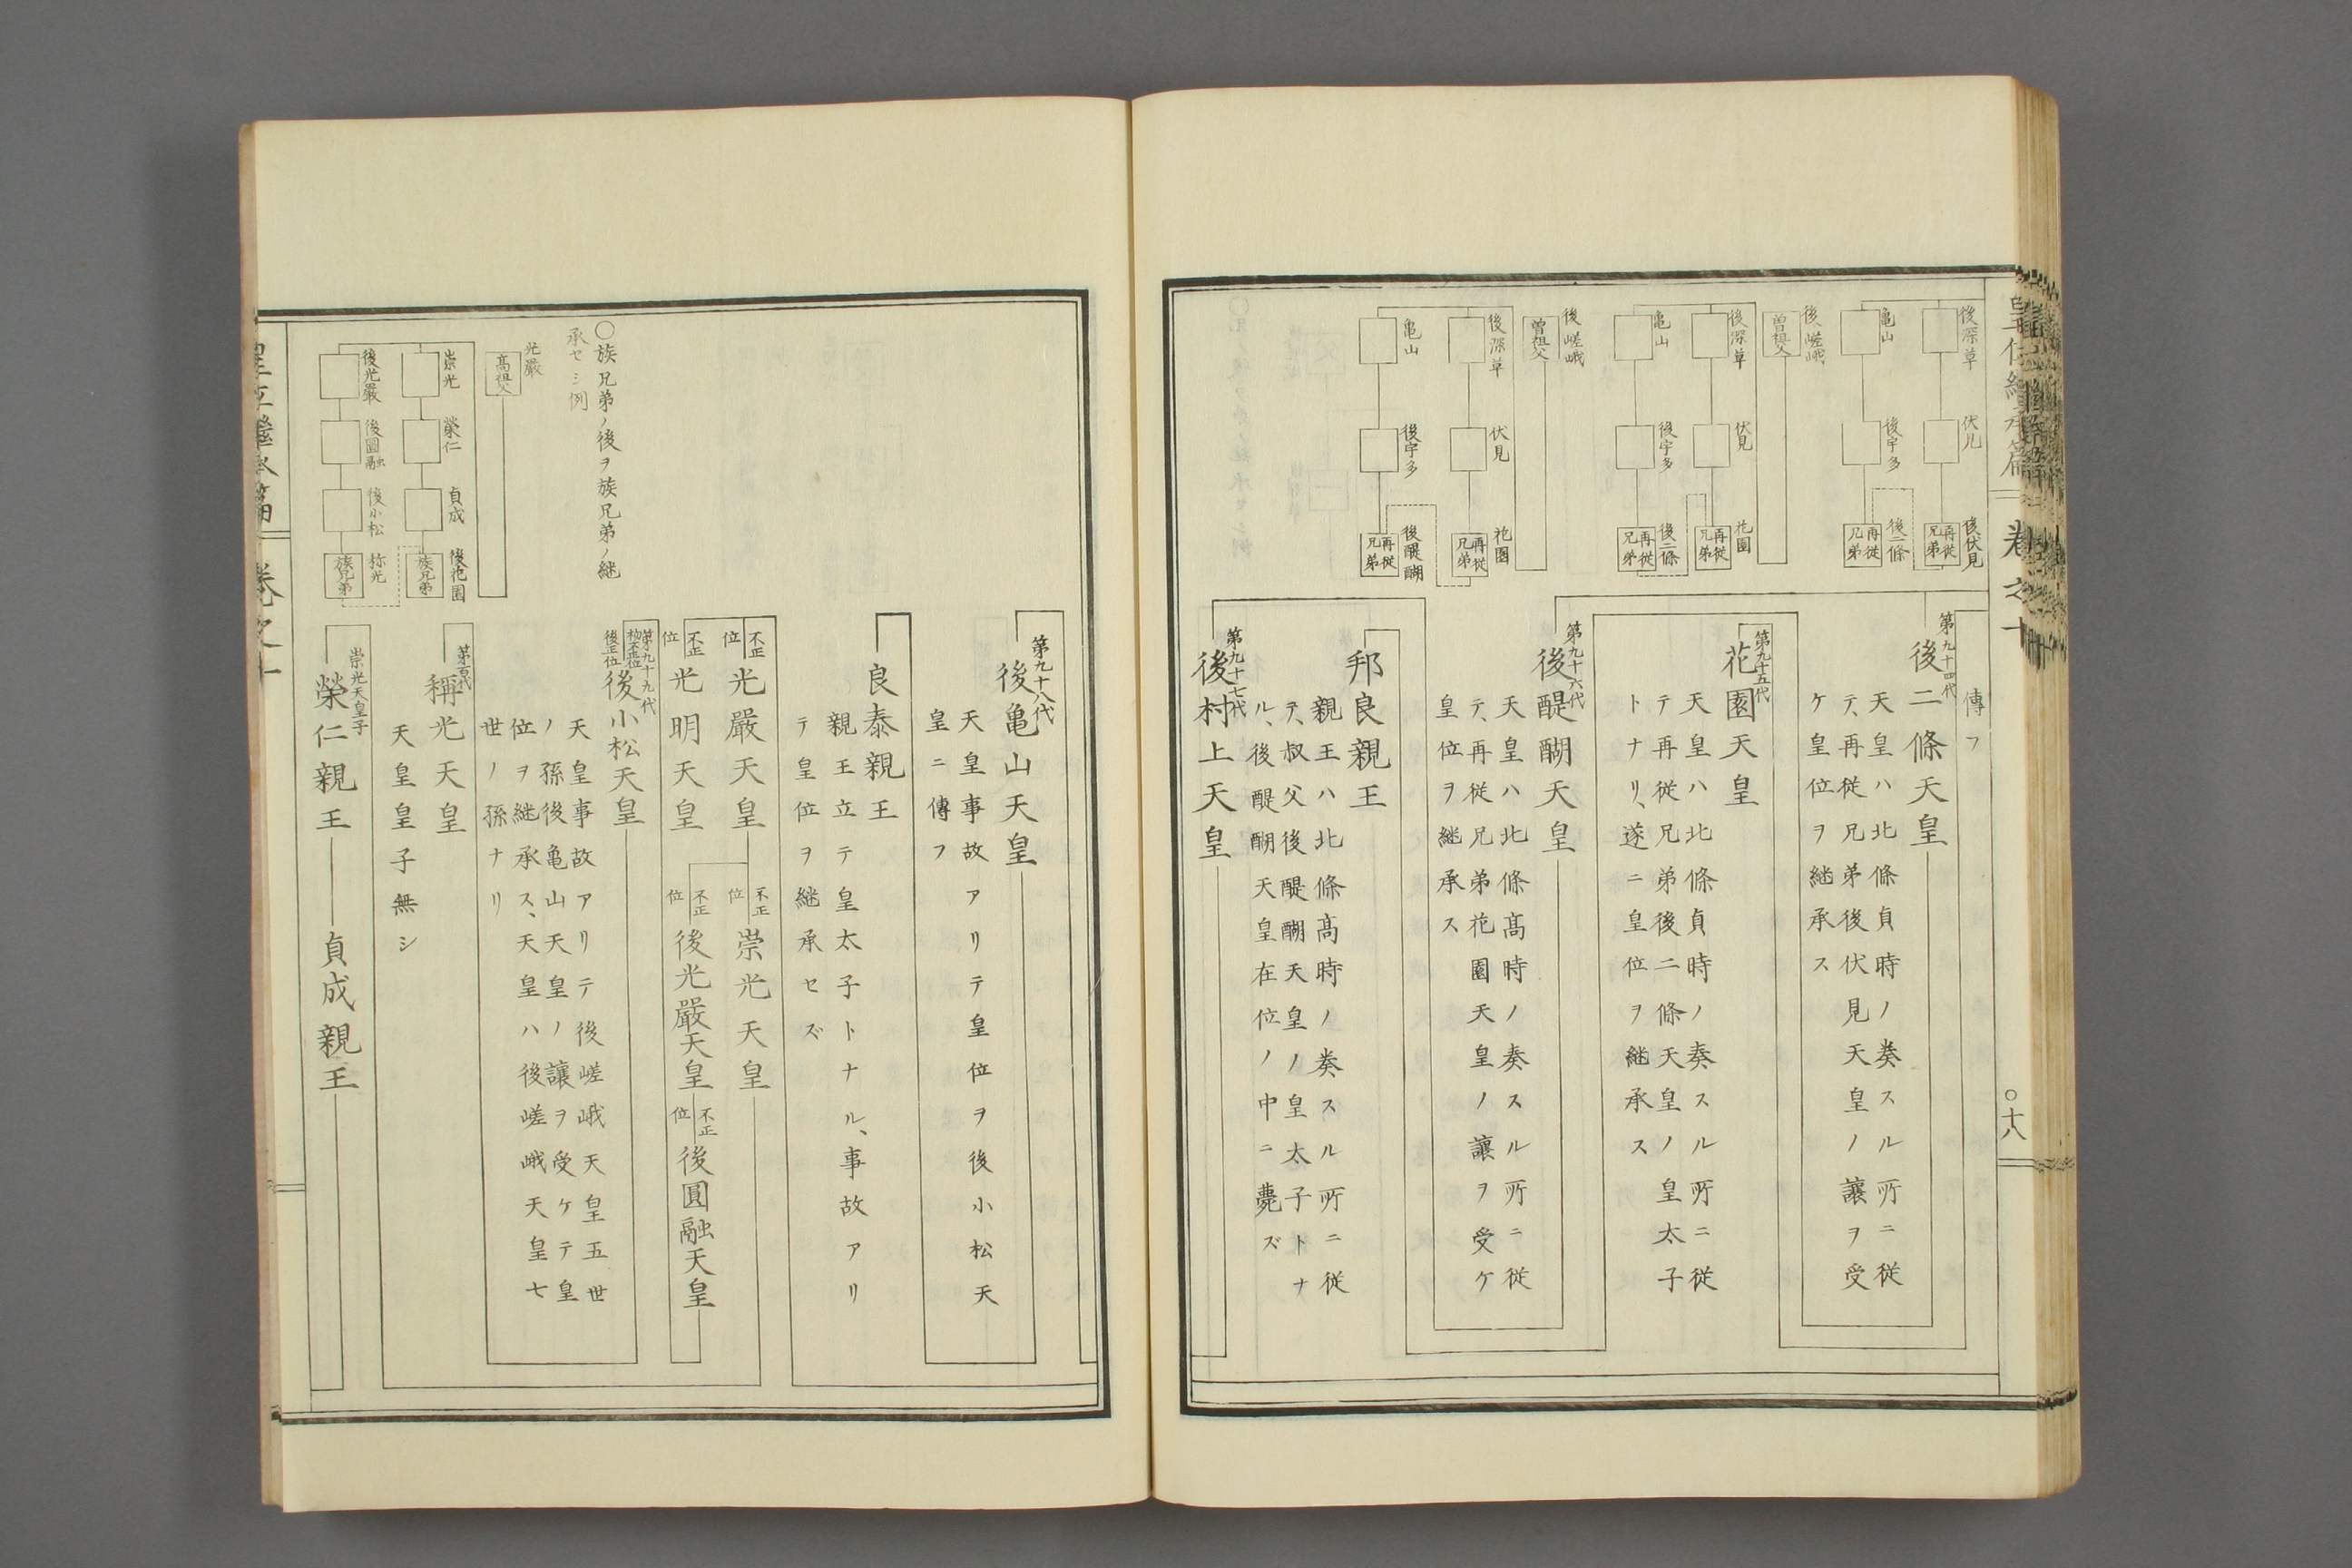 皇位繼承篇
卷之十
○十八
後深草
伏見
後伏見
再從兄弟
亀山
後宇多
後二條
再從兄弟
後嵯峨
曽祖父
後深草
伏見
花園
再從兄弟
亀山
後宇多
後二條
再從兄弟
後嵯峨
曽祖父
後深草
伏見
花園
再從兄弟
亀山
後宇多
後醍醐
再從兄弟
傳フ
第九十四代
後二條天皇
天皇ハ北條貞時ノ奏スル所ニ従
テ、再従兄弟後伏見天皇ノ讓ヲ受
ケ皇位ヲ継承ス
第九十五代
花園天皇
天皇ハ北條貞時ノ奏スル所ニ従
テ再従兄弟後二條天皇ノ皇太子
トナリ、遂ニ皇位ヲ継承ス
第九十六代
後醍醐天皇
天皇ハ北條髙時ノ奏スル所ニ従
テ、再従兄弟花園天皇ノ讓ヲ受ケ
皇位ヲ継承ス
邦良親王
親王ハ北條髙時ノ奏スル所ニ従
テ、叔父後醍醐天皇ノ皇太子トナ
ル、後醍醐天皇在位ノ中ニ薨ズ
第九十七代
後村上天皇
○族兄弟ノ後ヲ族兄弟ノ継
承セシ例
光嚴
髙祖父
崇光
榮仁
貞成
後花園
族兄弟
後光嚴
後圓融
後小松
称光
族兄弟
第九十八代
後亀山天皇
天皇事故アリテ皇位ヲ後小松天
皇ニ傳フ
良泰親王
親王立テ皇太子トナル、事故アリ
テ皇位ヲ継承セズ
不正位
光嚴天皇
不正位
崇光天皇
不正位
光明天皇
不正位
後光嚴天皇
不正位
後圓融天皇
第九十九代
初不正位
後正位
後小松天皇
天皇事故アリテ後嵯峨天皇五世
ノ孫後亀山天皇ノ讓ヲ受ケテ皇
位ヲ継承ス、天皇ハ後嵯峨天皇七
世ノ孫ナリ
第百代
稱光天皇
天皇皇子無シ
崇光天皇子
榮仁親王
貞成親王
皇位繼承篇
卷之十